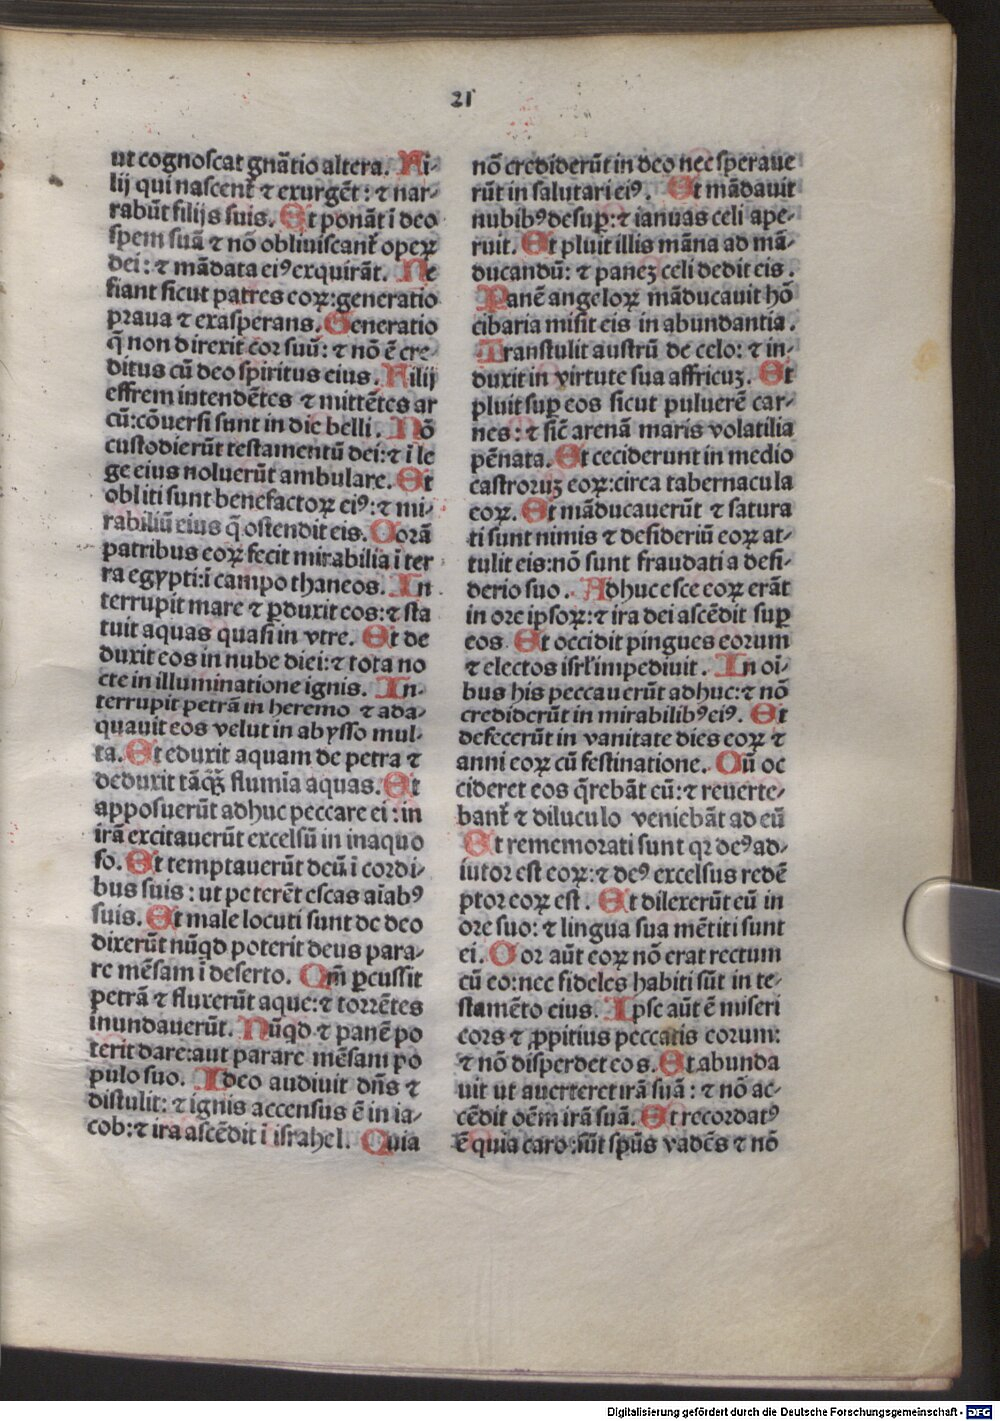 21
ut cognoſcat gnãtio altera. Fi-
lij qui naſcent̃ ⁊ exurgẽt: ⁊ nar-
rabũt filijs ſuis. Et ponãt ĩ deo
ſpem ſuã ⁊ nõ obliuiſcant̃ operꝝ
dei: ⁊ mãdata eiꝰ exquirãt. Ne
fiant ſicut patres eoꝝ: generatio
praua ⁊ exaſperans. Generatio
q̃ non direxit cor ſuũ: ⁊ nõ ẽ cre-
ditus cũ deo ſpiritus eius. Filij
effrem intendẽtes ⁊ mittẽtes ar
cũ: cõuerſi ſunt in die belli. Nõ
cuſtodierũt teſtamentũ dei: ⁊ ĩ le
ge eius noluerũt ambulare. Et
obliti ſunt benefactoꝝ eiꝰ: ⁊ mi-
rabiliũ eius q̃ oſtendit eis. Corã
patribus eoꝝ fecit mirabilia ĩ ter
ra egypti: ĩ campo thaneos. In
terrupit mare ⁊ ꝑduxit eos: ⁊ ſta
tuit aquas quaſi in vtre. Et de
duxit eos in nube diei: ⁊ tota no
cte in illuminatione ignis. In-
terrupit petrã in heremo ⁊ ada-
quauit eos velut in abyſſo mul-
ta. Et eduxit aquam de petra ⁊
deduxit tãq̃ꝫ flumĩa aquas. Et
appoſuerũt adhuc peccare ei: in
irã excitauerũt excelſũ in inaquo
ſo. Et temptauerũt deũ ĩ cordi-
bus ſuis: ut peterẽt eſcas aĩabꝰ
ſuis. Et male locuti ſunt de deo
dixerũt nũqd poterit deus para-
re mẽſam ĩ deſerto. Qm̃ ꝑcuſſit
petrã ⁊ fluxerũt aque: ⁊ torrẽtes
inundauerũt. Nũqd ⁊ panẽ po
terit dare: aut parare mẽſam po
pulo ſuo. Ideo audiuit dñs ⁊
diſtulit: ⁊ ignis accenſus ẽ in ia-
cob: ⁊ ira aſcẽdit ĩ iſrahel. Quia
nõ crediderũt in deo nec ſperaue
rũt in ſalutari eiꝰ. Et mãdauit
nubibꝰ deſuꝑ: ⁊ ianuas celi ape-
ruit. Et pluit illis mãna ad mã-
ducandũ: ⁊ paneꝫ celi dedit eis.
Panẽ angeloꝝ mãducauit hõ
cibaria miſit eis in abundantia.
Tranſtulit auſtrũ de celo: ⁊ in-
duxit in virtute ſua affricuꝫ. Et
pluit ſuꝑ eos ſicut puluerẽ car-
nes: ⁊ ſic̃ arenã maris volatilia
pẽnata. Et ceciderunt in medio
caſtroruꝫ eoꝝ: circa tabernacula
eoꝝ. Et mãducauerũt ⁊ ſatura
ti ſunt nimis ⁊ deſideriũ eoꝝ at-
tulit eis: nõ ſunt fraudati a deſi-
derio ſuo. Adhuc eſce eoꝝ erãt
in ore ipſoꝝ: ⁊ ira dei aſcẽdit ſuꝑ
eos. Et occidit pingues eorum
⁊ electos iſrl̃ impediuit. In oĩ-
bus his peccauerũt adhuc: ⁊ nõ
crediderũt in mirabilibꝰ eiꝰ. Et
defecerũt in vanitate dies eoꝝ ⁊
anni eoꝝ cũ feſtinatione. Cũ oc
cideret eos q̃rebãt eũ: ⁊ reuerte-
bant̃ ⁊ diluculo veniebãt ad eũ
Et rememorati ſunt qꝛ deꝰ ad-
iutor eſt eoꝝ: ⁊ deꝰ excelſus redẽ
ptor eoꝝ eſt. Et dilexerũt eũ in
ore ſuo: ⁊ lingua ſua mẽtiti ſunt
ei. Cor aũt eoꝝ nõ erat rectum
cũ eo: nec fideles habiti ſũt in te-
ſtamẽto eius. Ipſe aũt ẽ miſeri
cors ⁊ ꝓpitius peccatis eorum:
⁊ nõ diſperdet eos. Et abunda
uit ut auerteret irã ſuã: ⁊ nõ ac-
cẽdit oẽm irã ſuã. Et recordatꝰ
ẽ quia caro ſũt ſpũs vadẽs ⁊ nõ
Digitalisierung gefördert durch die Deutsche Forschungsgemeinschaft - DFG